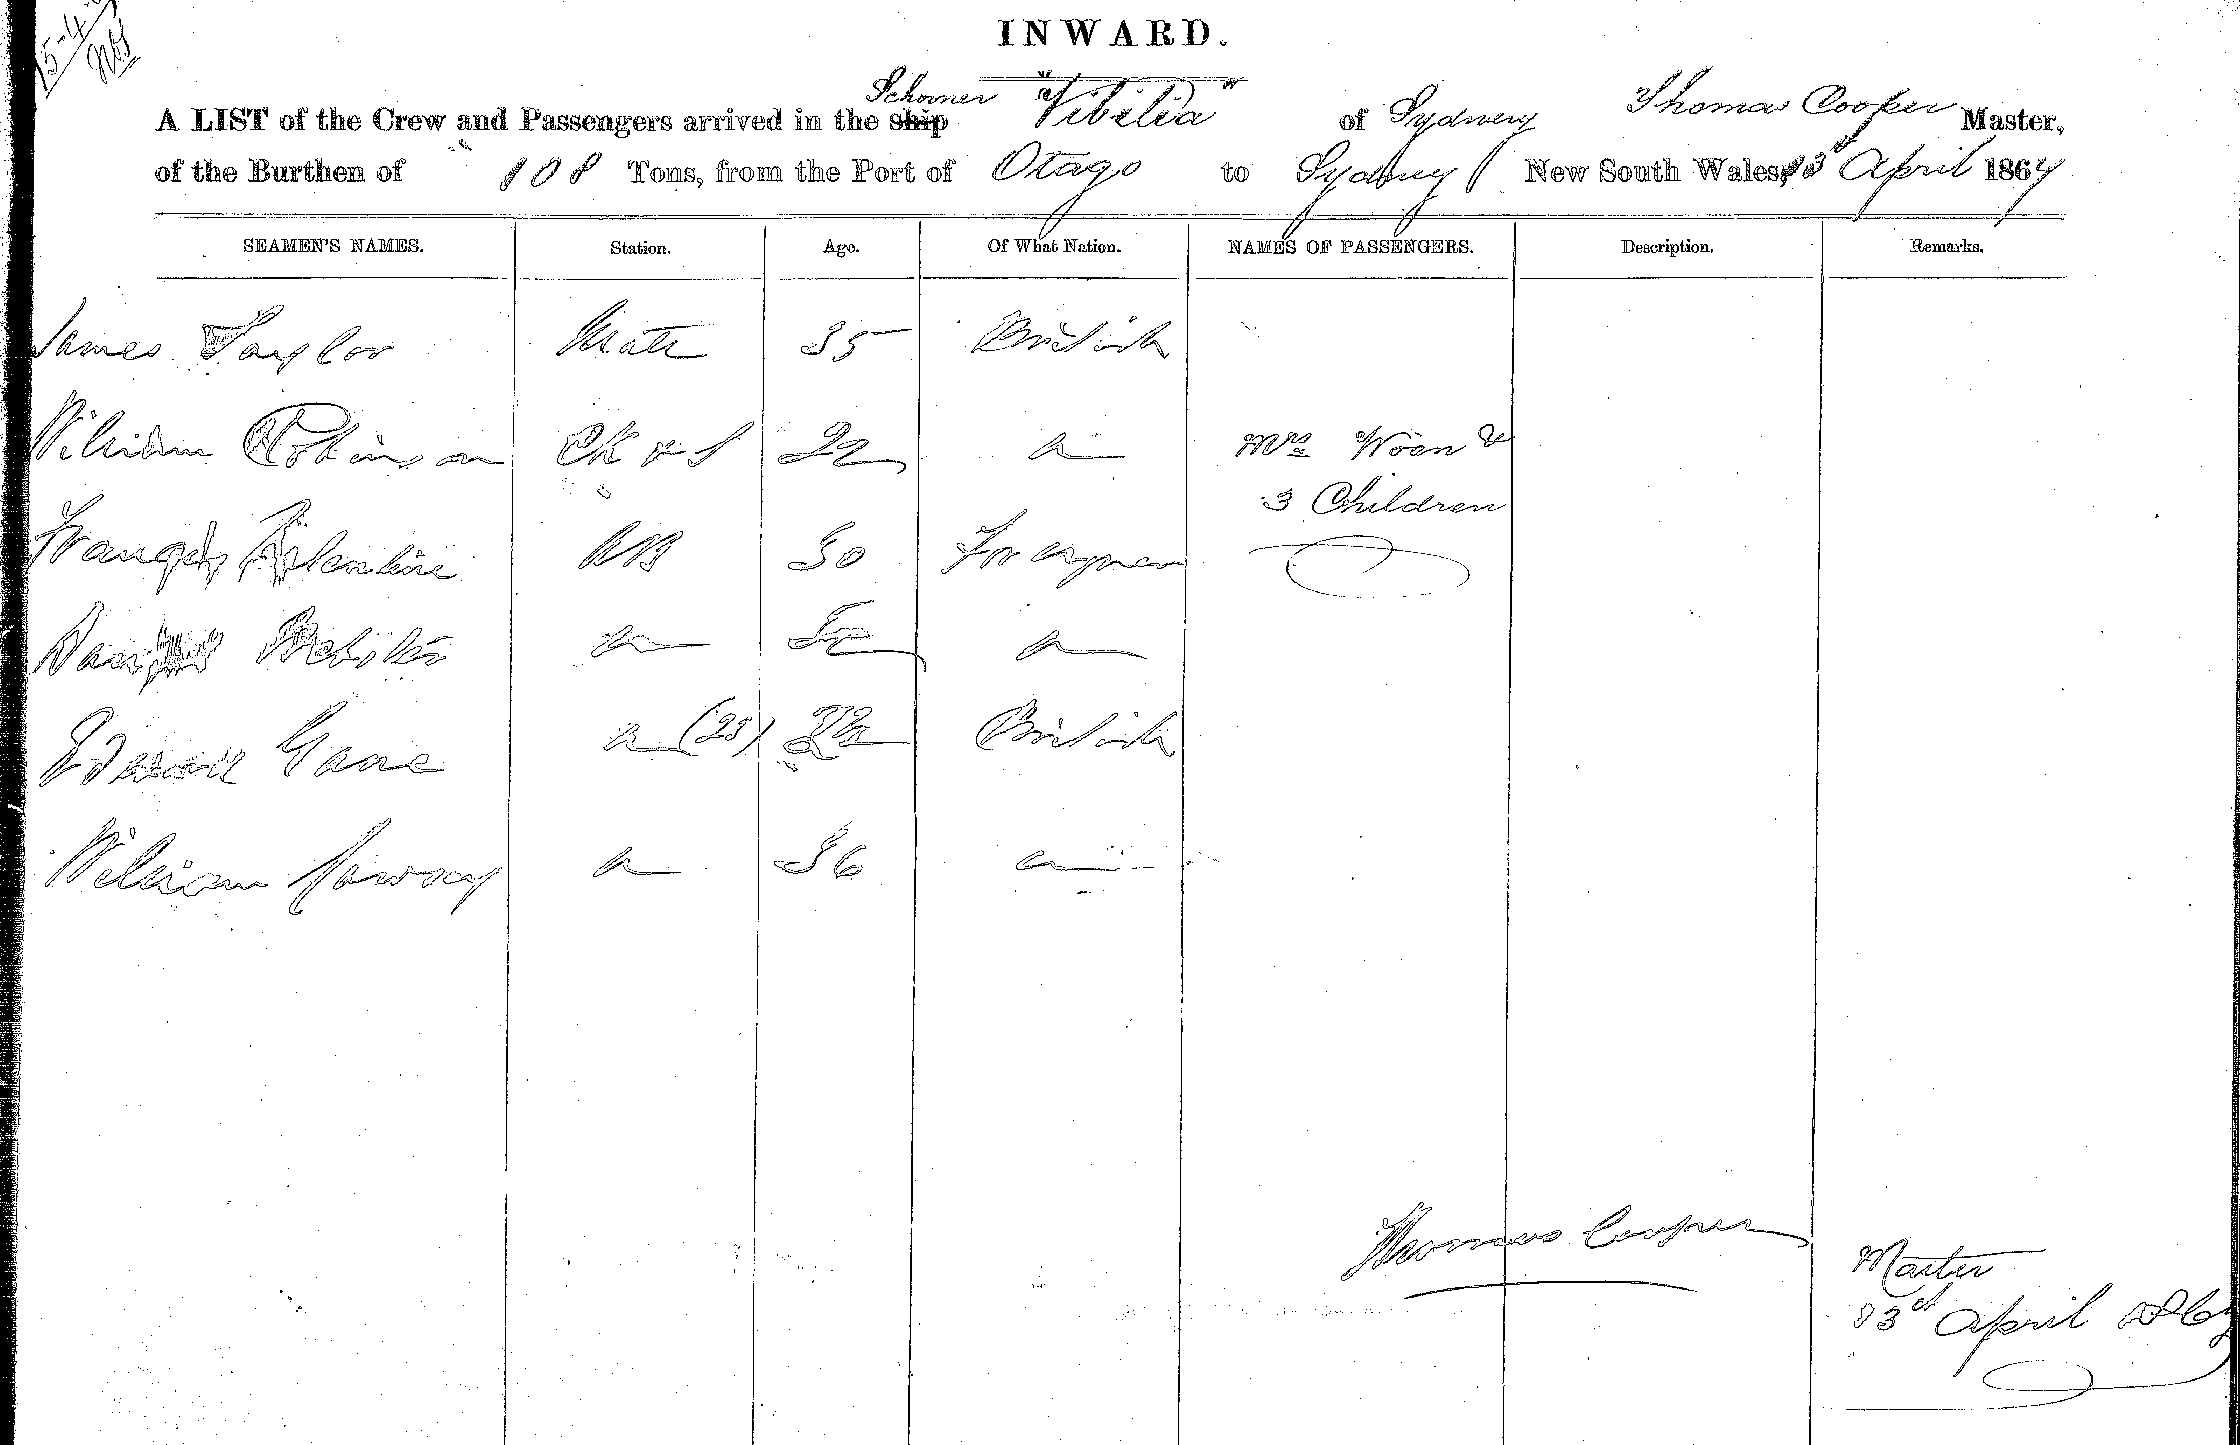 INWARD.
A LIST of the Crew and Passengers arrived in the ship Schooner "Vibilia" of Sydney Thomas Cooper Master,
of the Burthen of 108 Tons, from the Port of Otago to Sydney New South Wales, 13th April 1864
SEAMEN'S NAMES. Station. Age. Of What Nation. NAMES OF PASSENGERS. Description. Remarks.
James Taylor Mate 35 British
William Robinson 22 Mrs Woon &
3 Children
AB 30 Foreigner
Webster
(25) British
William 36
Thomas Cooper
Master
13th April